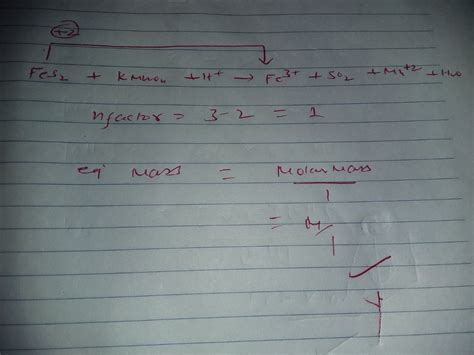 +2
FeS₂ + KMnO₄ + H⁺ → Fe³⁺ + SO₂ + Mn⁺² + H₂O
nfactor = 3-2 = 1
eq Mass = Molar Mass
1
= M/
1